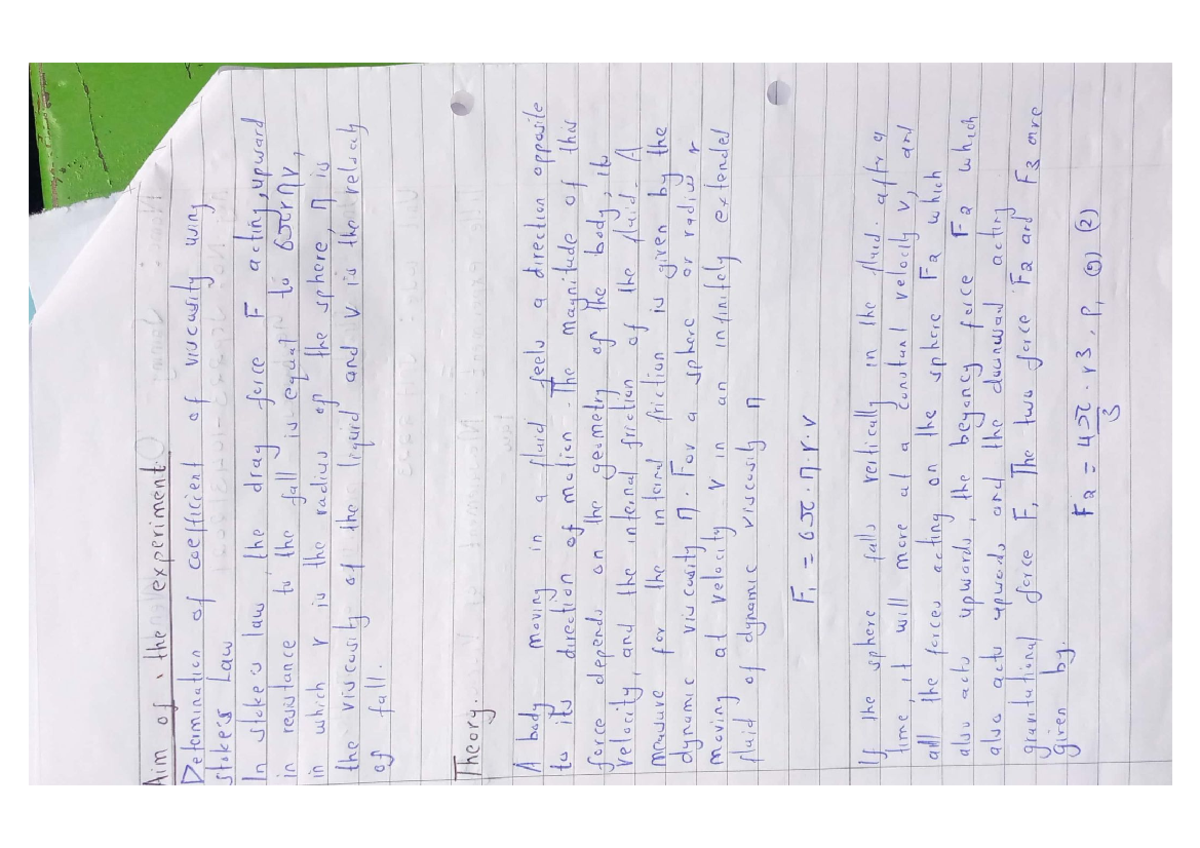 Aim of the experiment.
Determination of coefficient of viscosity using
stoke's Law
In stoke's law, the drag force F acting, upward
in resistance to the fall is equal to 6πrηv,
in which r is the radius of the sphere, η is
the viscosity of the liquid and v is the velocity
of fall.
Theory.
A body moving in a fluid feels a direction opposite
to its direction of motion. The magnitude of this
force depends on the geometry of the body, its
velocity, and the internal friction of the fluid. A
measure for the internal friction is given by the
dynamic viscosity η. For a sphere or radius r
moving at velocity v in an infinitely extended
fluid of dynamic viscosity η
F₁ = 6π·η·r·v
If the sphere falls vertically in the fluid. after a
time, it will more at a constant velocity v, and
all the forces acting on the sphere F2 which
also acts upwards, the beyancy force F2 which
also acts upwards and the downward acting
gravitational force F, The two force F2 and F3 are
given by.
F2 = 4π/3 · r3 · P, (g) (2)